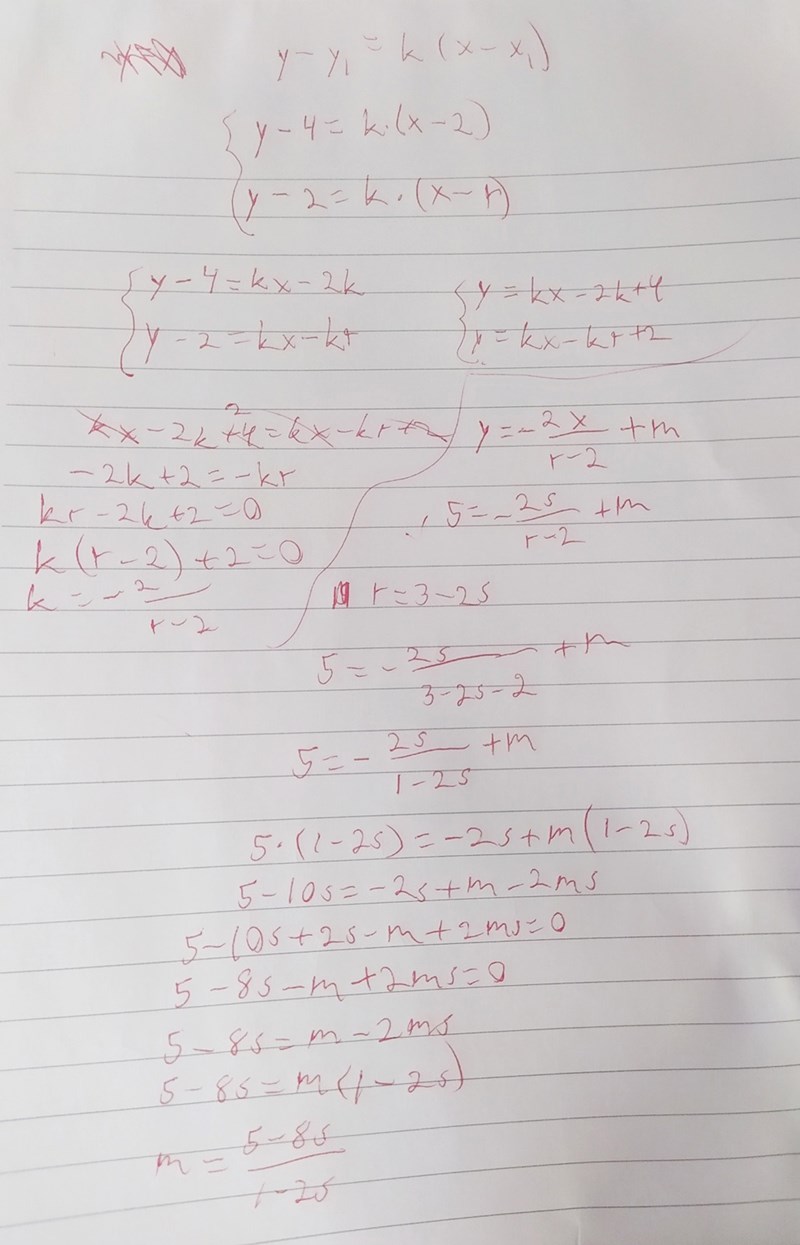 y - y₁ = k (x - x₁)
{ y - 4 = k · (x - 2)
y - 2 = k · (x - r)
{ y - 4 = kx - 2k
y - 2 = kx - kr
{ y = kx - 2k + 4
y = kx - kr + 2
kx - 2k + 4 2 = kx - kr + 2
-2k + 2 = -kr
kr - 2k + 2 = 0
k (r - 2) + 2 = 0
k = - 2 / (r - 2)
y = - 2x / (r - 2) + m
5 = - 2s / (r - 2) + m
r = 3 - 2s
5 = - 2s / (3 - 2s - 2) + m
5 = - 2s / (1 - 2s) + m
5 · (1 - 2s) = -2s + m (1 - 2s)
5 - 10s = -2s + m - 2ms
5 - 10s + 2s - m + 2ms = 0
5 - 8s - m + 2ms = 0
5 - 8s = m - 2ms
5 - 8s = m (1 - 2s)
m = (5 - 8s) / (1 - 2s)